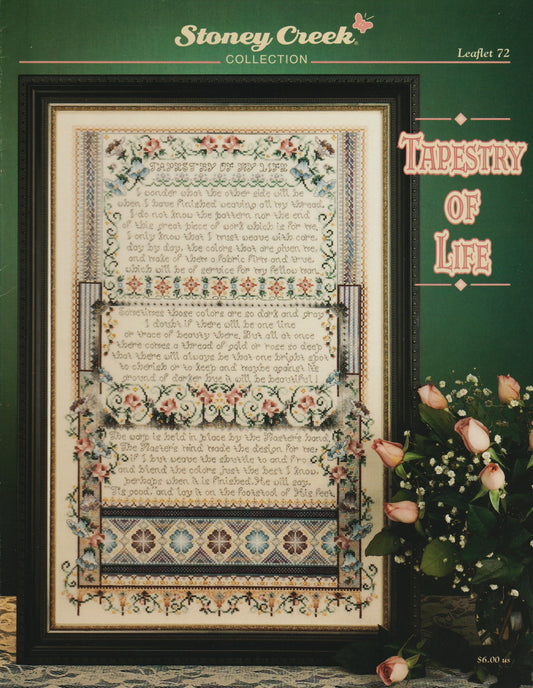 Stoney Creek
COLLECTION
Leaflet 72
TAPESTRY
OF
LIFE
TAPESTRY OF MY LIFE
I wonder what the other side will be
when I have finished weaving all my thread.
I do not know the pattern nor the end
of this great piece of work which is for me.
I only know that I must weave with care,
day by day, the colors that are given me,
and make of them a fabric firm and true,
which will be of service for my fellow man.
Sometimes those colors are so dark and gray
I doubt if there will be one line
or trace of beauty there. But all at once
there comes a thread of gold or rose so deep
that there will always be that one bright spot
to cherish or to keep and maybe against its
ground of darker hue it will be beautiful!
The warp is held in place by the Master's hand.
The Master's mind made the design for me;
If I but weave the shuttle to and fro
and blend the colors just the best I know,
perhaps when it is finished, He will say,
'Tis good, and lay it on the footstool of His feet.
$6.00 us